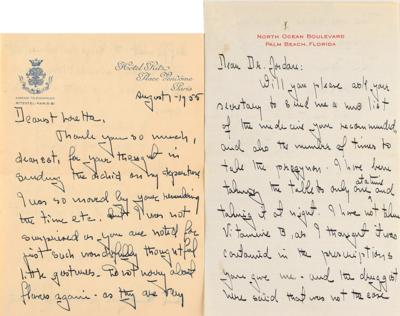 Hotel Ritz
Place Vendôme
Paris
August 1-1955
Dearest Loretta,
Thank you so much,
dearest, for your thought in
sending the orchid on my departure
I was so moved by your remembering
the time etc. But I was not
surprised as you are noted for
just such wonderfully thoughtful
little gestures. Do not worry about
flowers again - as they are very
NORTH OCEAN BOULEVARD
PALM BEACH, FLORIDA
Dear Dr. Jordan:
Will you please ask your
secretary to send me a list
of the medicine you recommended
and also the number of times to
take the
taking the tablets only one at a time and
taking it at night. I have not taken
Vitamine B, as I thought it was
contained in the prescriptions
you gave me - and the druggist
here said that was not the case